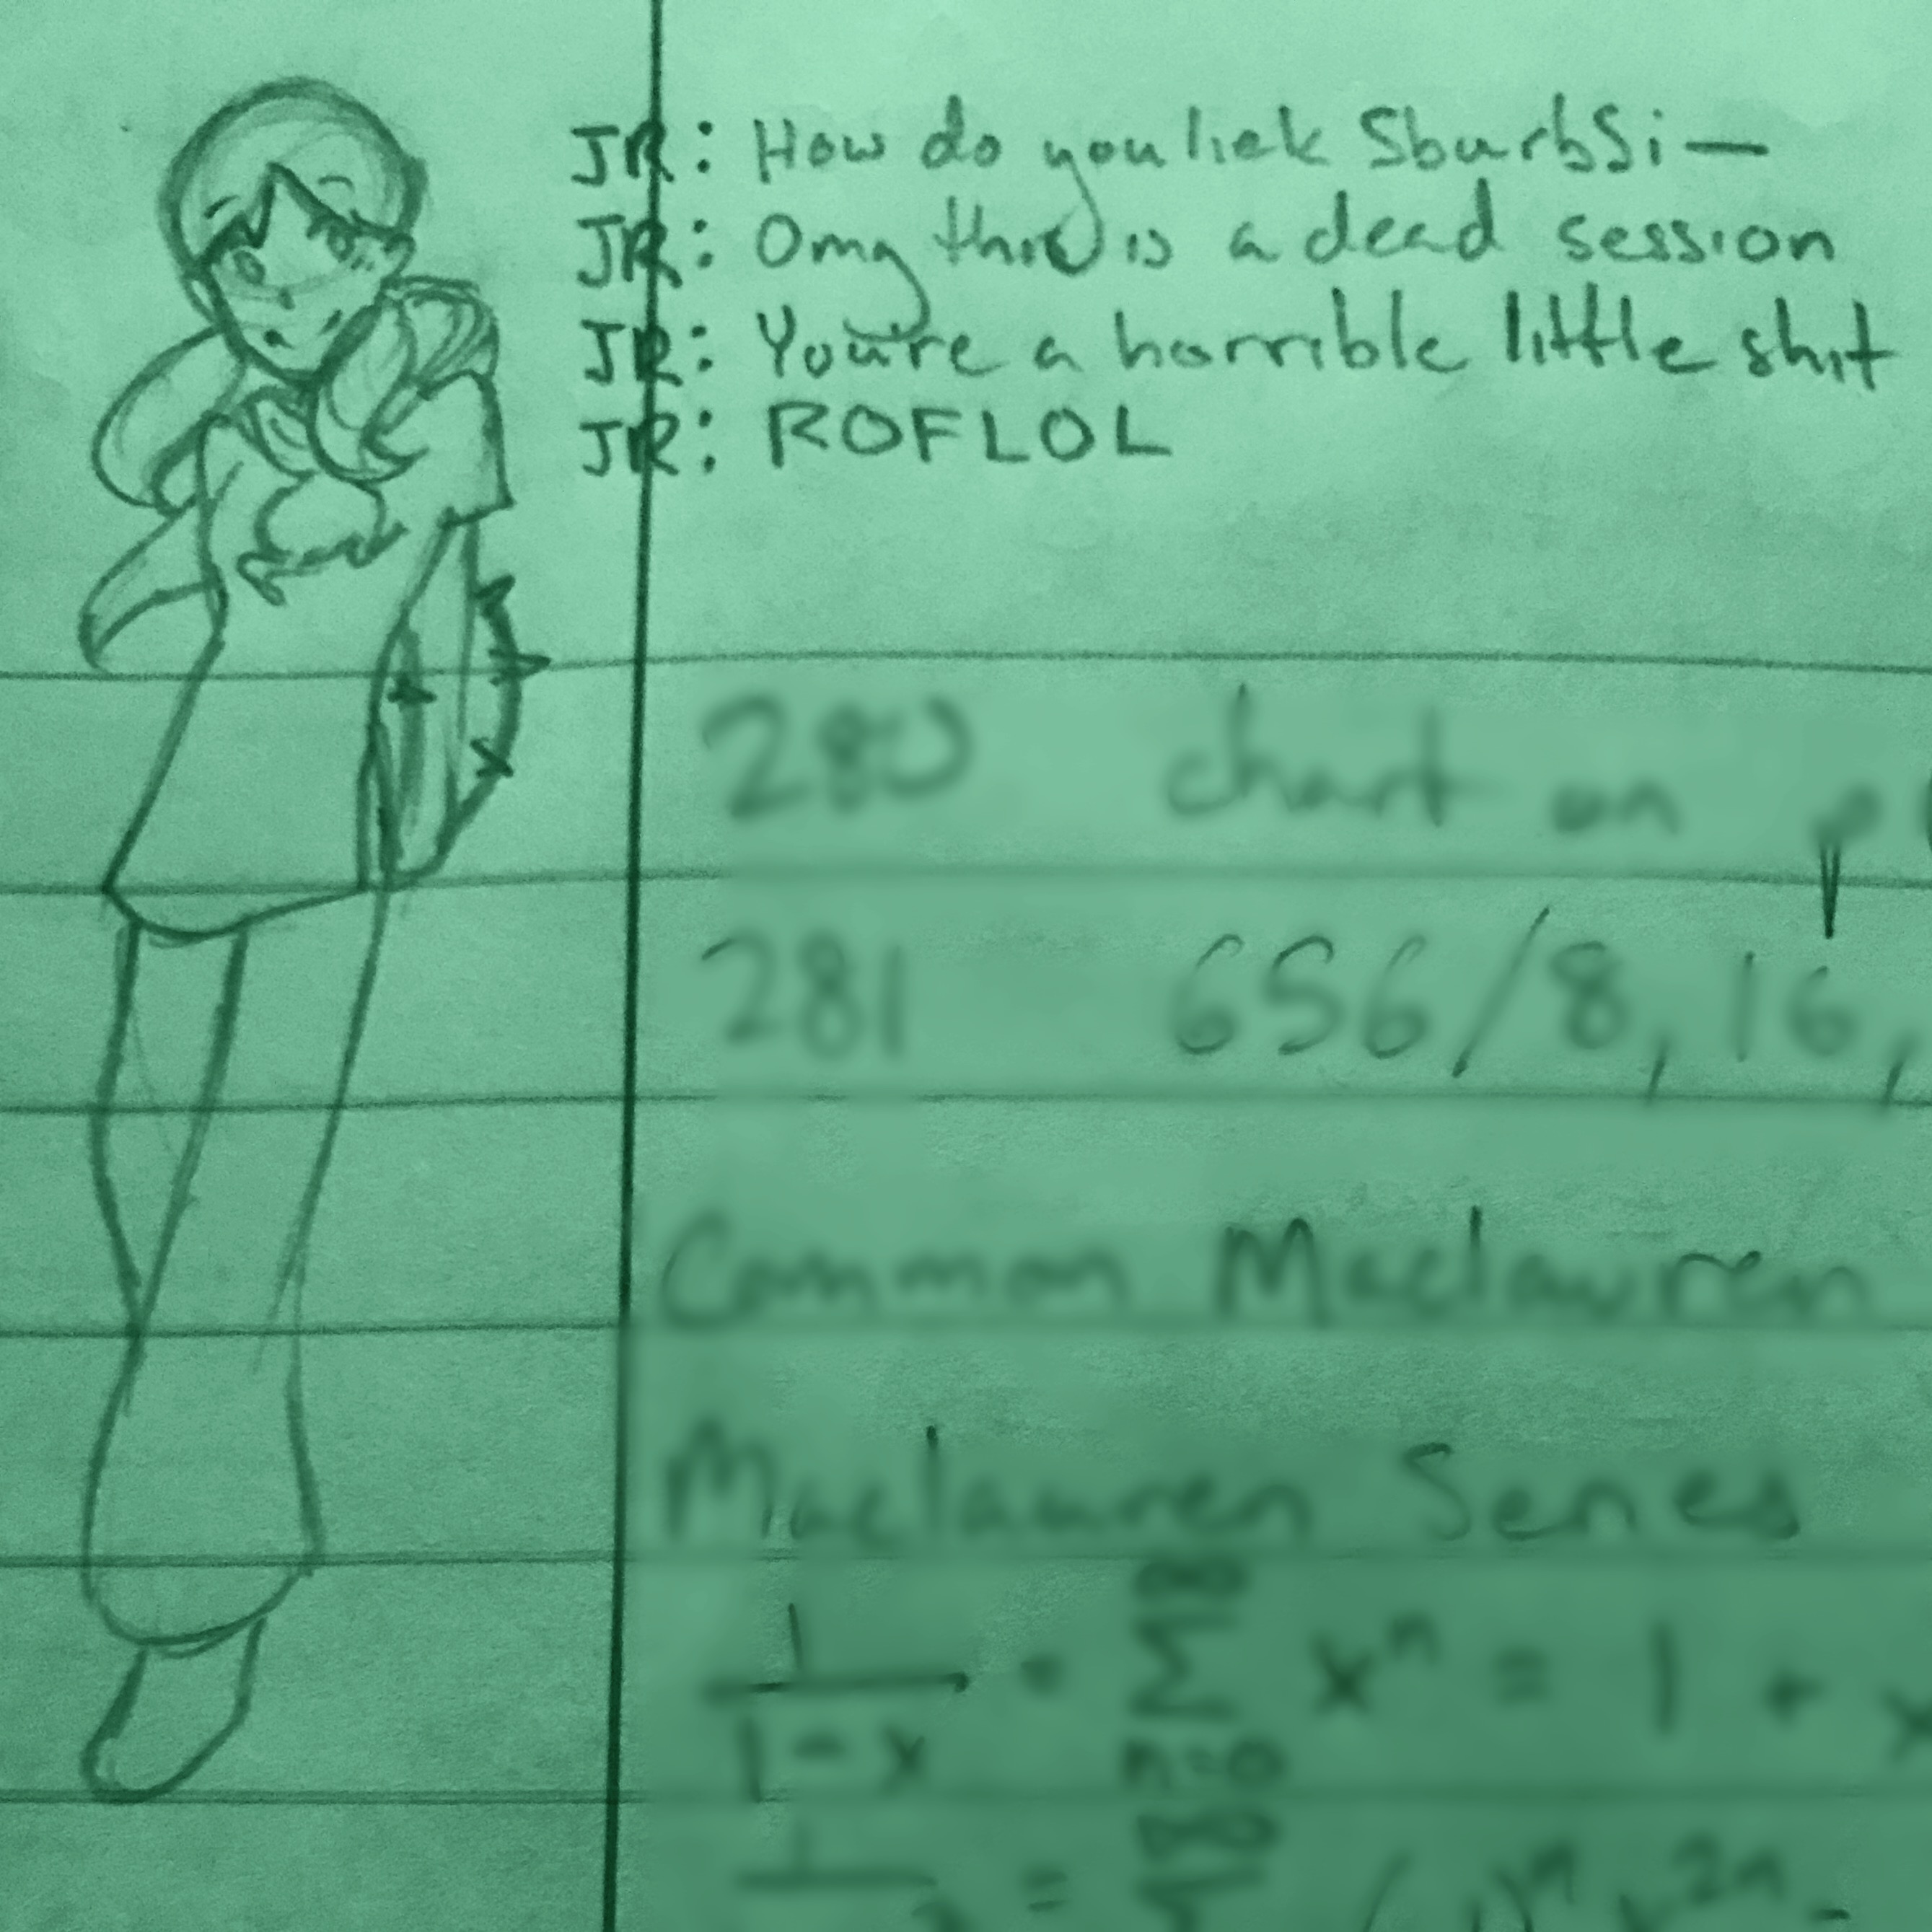 JR: How do you liek SburbSi—
JR: Omg this is a dead session
JR: You're a horrible little shit
JR: ROFLOL
280 chart on
281 656/8, 16,
Common Maclauren
Maclauren Series
1/(1-x) = ∞ Σ n=0 x^n = 1 + x